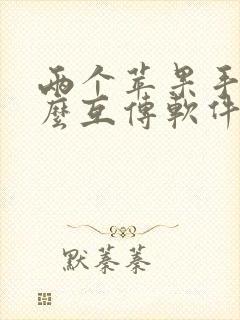 两个苹果手
麼互傳軟件
默蓁蓁